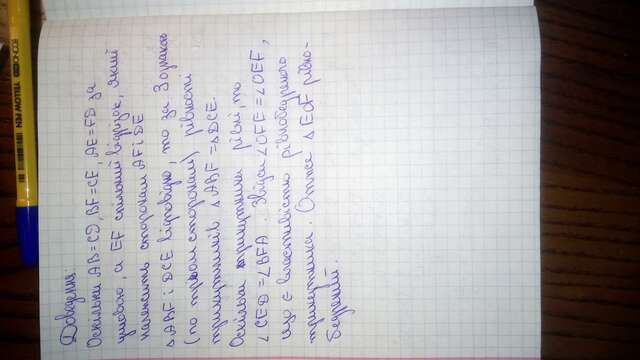 Доведення:
Оскільки AB=CD, BF=CE, AE=FD за
умовою, а EF спільний відрізок, який
належить сторонам AF і DE
△ABF і DCE відповідно, то за 3 ознакою
(по трьом сторонам) рівності
трикутників △ABF = △DCE.
Оскільки трикутники рівні, то
∠CED = ∠BFA. Звідси ∠OFE = ∠OEF,
що є властивістю рівнобедреного
трикутника. Отже △EOF рівно-
бедрений.
YELLOW PEN